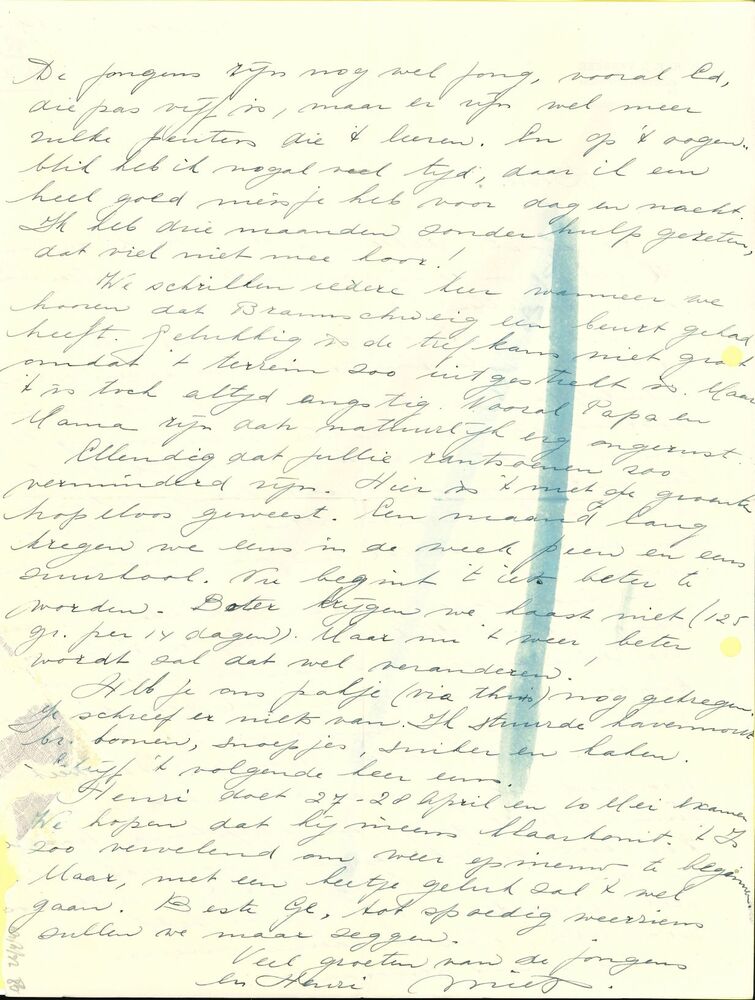 De jongens zijn nog wel jong, vooral Ed,
die pas vijf is, maar er zijn wel meer
zulke peuters die 't leeren. En op 't oogen-
blik heb ik nogal veel tijd, daar ik een
heel goed meisje heb voor dag en nacht.
Ik heb drie maanden zonder hulp gezeten,
dat viel niet mee hoor!
We schrikken iedere keer wanneer we
hooren dat Braunschweig een beurt gehad
heeft. Gelukkig is de trefkans niet groot
omdat 't terrein zoo uitgestrekt is. Maar
't is toch altijd angstig. Vooral Papa en
Mama zijn dan natuurlijk erg ongerust.
Ellendig dat jullie rantsoenen zoo
verminderd zijn. Hier is 't met de groente
hopeloos geweest. Een maand lang
kregen we eens in de week peen en eens
zuurkool. Nu begint 't iets beter te
worden. Boter krijgen we haast niet (125
gr. per 14 dagen). Maar nu 't weer beter
wordt zal dat wel veranderen!
Heb je ons pakje (via thuis) nog gekregen.
Je schreef er niets van. Ik stuurde havermout
br. boonen, snoepjes, suiker en kaken.
Schrijf 't volgende keer eens.
Henri doet 27-28 April en 10 Mei examen
We hopen dat hij ineens klaarkomt. 't Is
zoo vervelend om weer opnieuw te beginnen.
Maar, met een beetje geluk zal 't wel
gaan. Beste Ge, tot spoedig weerziens
zullen we maar zeggen.
Veel groeten van de jongens
en Henri Miet.